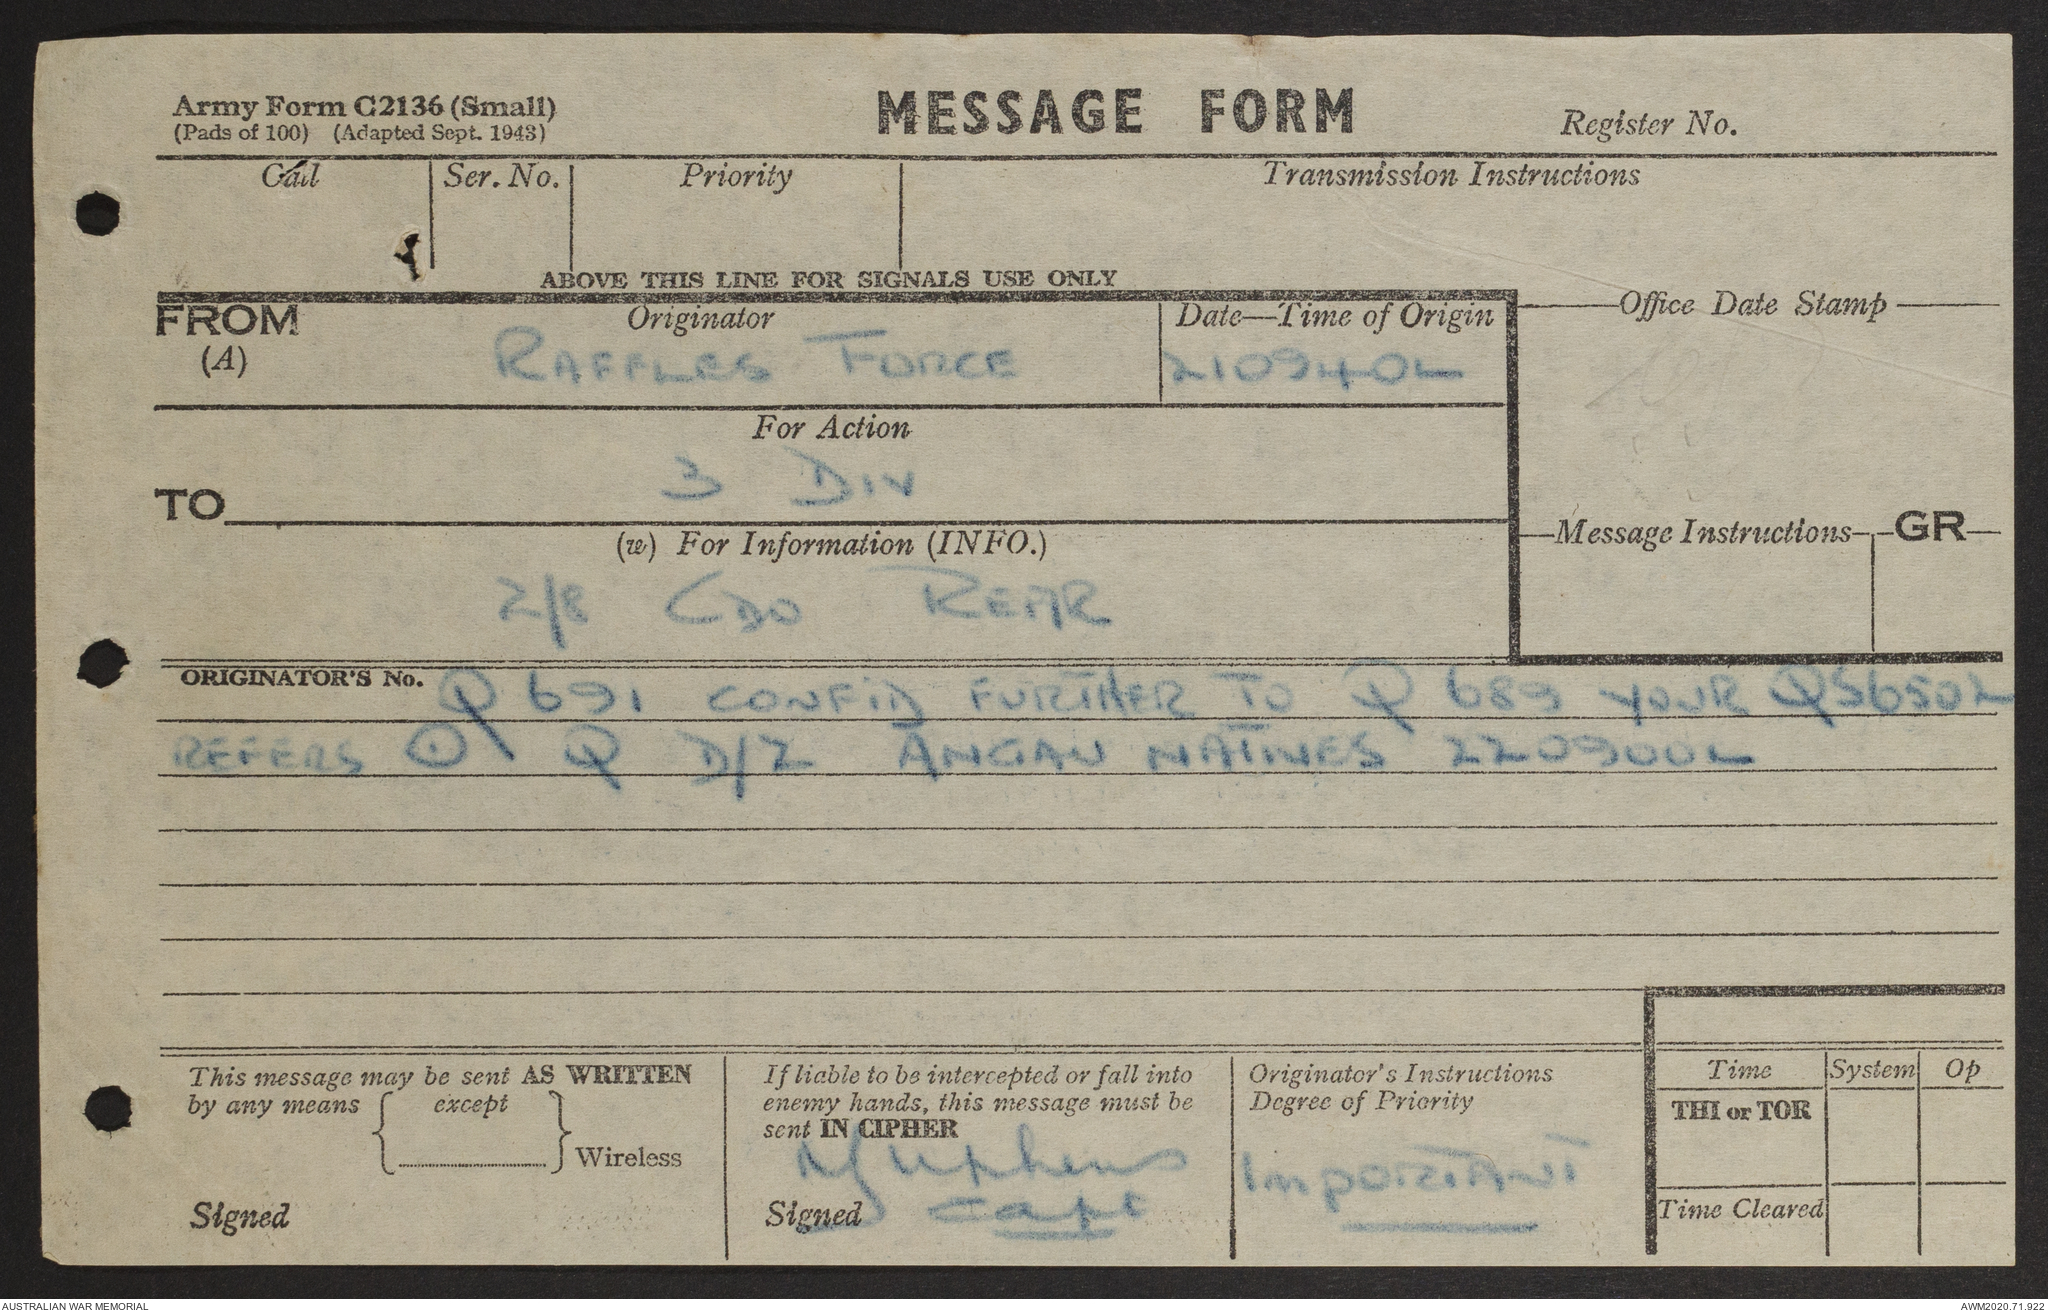 Army Form C2136 (Small)
(Pads of 100) (Adapted Sept. 1943)
MESSAGE FORM
Register No.
Call Ser. No. Priority Transmission Instructions
ABOVE THIS LINE FOR SIGNALS USE ONLY
FROM
(A)
Originator
RAFFLES FORCE
Date—Time of Origin
210940L
Office Date Stamp
For Action
3 DIV
TO
(w) For Information (INFO.)
2/8 CDO REAR
Message Instructions GR
ORIGINATOR'S No. Q 691 CONFID FURTHER TO Q 689 YOUR QS650L
REFERS ⊙ Q D/Z ANGAU NATIVES 220900L
This message may be sent AS WRITTEN
by any means { except } Wireless
Signed
If liable to be intercepted or fall into
enemy hands, this message must be
sent IN CIPHER
Signed Capt
Originator's Instructions
Degree of Priority
IMPORTANT
Time System Op
THI or TOR
Time Cleared
AUSTRALIAN WAR MEMORIAL
AWM2020.71.922